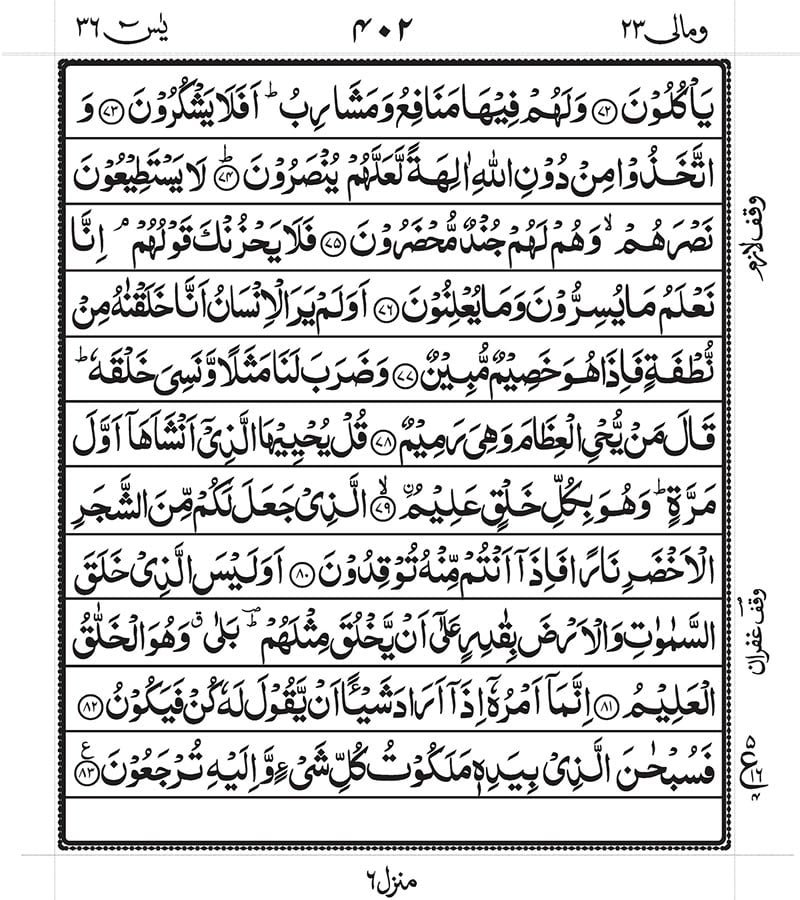 ومالی ٢٣ ٤٠٢ یٰسٓ ٣٦
یَاۡكُلُوۡنَ ﴿۷۲﴾ وَلَهُمۡ فِيۡهَا مَنَافِعُ وَمَشَارِبُ ؕ اَفَلَا يَشۡكُرُوۡنَ ﴿۷۳﴾ وَ
اتَّخَذُوۡا مِنۡ دُوۡنِ اللّٰهِ اٰلِهَةً لَّعَلَّهُمۡ يُنۡصَرُوۡنَ ؕ ﴿۷۴﴾ لَا يَسۡتَطِيۡعُوۡنَ
نَصۡرَهُمۡ ۙ وَهُمۡ لَهُمۡ جُنۡدٌ مُّحۡضَرُوۡنَ ﴿۷۵﴾ فَلَا يَحۡزُنۡكَ قَوۡلُهُمۡ ۘ اِنَّا
وقف لازم
نَعۡلَمُ مَا يُسِرُّوۡنَ وَمَا يُعۡلِنُوۡنَ ﴿۷۶﴾ اَوَلَمۡ يَرَ الۡاِنۡسَانُ اَنَّا خَلَقۡنٰهُ مِنۡ
نُّطۡفَةٍ فَاِذَا هُوَ خَصِيۡمٌ مُّبِيۡنٌ ﴿۷۷﴾ وَضَرَبَ لَنَا مَثَلًا وَّنَسِىَ خَلۡقَهٗ ؕ
قَالَ مَنۡ يُّحۡىِ الۡعِظَامَ وَهِىَ رَمِيۡمٌ ﴿۷۸﴾ قُلۡ يُحۡيِيۡهَا الَّذِىۡۤ اَنۡشَاَهَاۤ اَوَّلَ
مَرَّةٍ ؕ وَهُوَ بِكُلِّ خَلۡقٍ عَلِيۡمُ ۙ ﴿۷۹﴾ الَّذِىۡ جَعَلَ لَكُمۡ مِّنَ الشَّجَرِ
الۡاَخۡضَرِ نَارًا فَاِذَاۤ اَنۡتُمۡ مِّنۡهُ تُوۡقِدُوۡنَ ﴿۸۰﴾ اَوَلَيۡسَ الَّذِىۡ خَلَقَ
السَّمٰوٰتِ وَالۡاَرۡضَ بِقٰدِرٍ عَلٰٓى اَنۡ يَّخۡلُقَ مِثۡلَهُمۡ ؕ بَلٰى ۗ وَهُوَ الۡخَلّٰقُ
وقف غفران
الۡعَلِيۡمُ ﴿۸۱﴾ اِنَّمَاۤ اَمۡرُهٗۤ اِذَاۤ اَرَادَ شَيۡـًٔـا اَنۡ يَّقُوۡلَ لَهٗ كُنۡ فَيَكُوۡنُ ﴿۸۲﴾
فَسُبۡحٰنَ الَّذِىۡ بِيَدِهٖ مَلَكُوۡتُ كُلِّ شَىۡءٍ وَّاِلَيۡهِ تُرۡجَعُوۡنَ ﴿۸۳﴾ ع
ع ۵ ١٦ ۴
منزل ٦